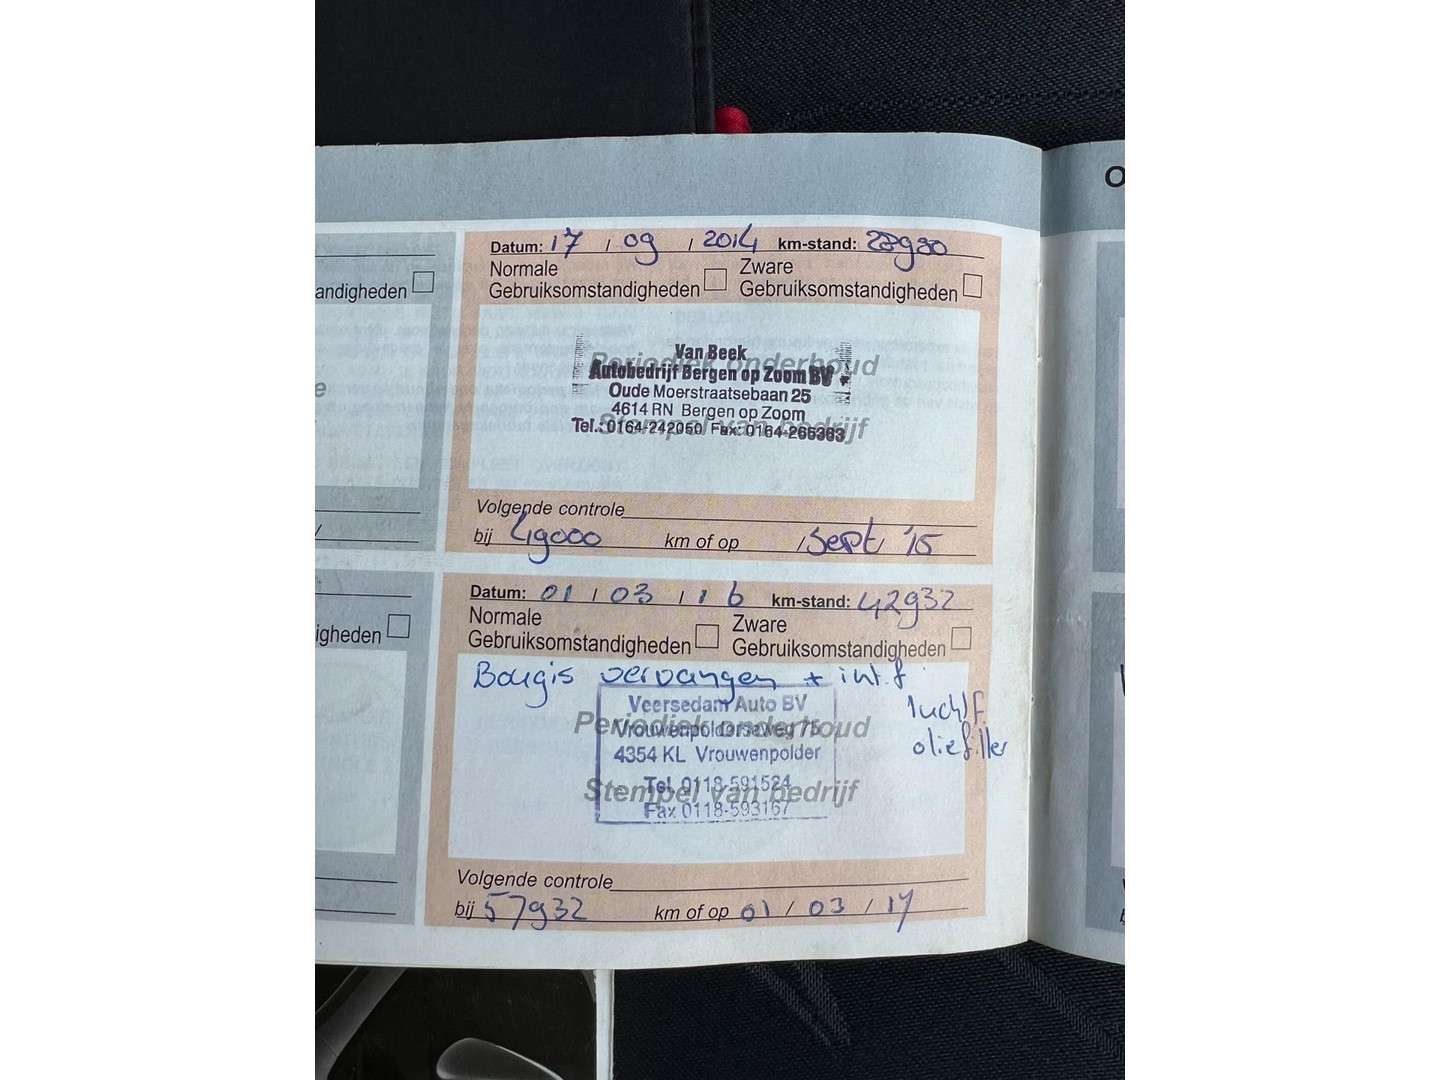 O
andigheden
e
/
igheden
Datum: 17 / 09 / 2014 km-stand:
Normale Zware
Gebruiksomstandigheden Gebruiksomstandigheden
Periodiek onderhoud
Stempel van bedrijf
Van Beek
Autobedrijf Bergen op Zoom BV
Oude Moerstraatsebaan 25
4614 RN Bergen op Zoom
Tel.: 0164-242050 Fax: 0164-265363
Volgende controle
bij 49000 km of op / Sept / '15
Datum: 01 / 03 / 16 km-stand: 42932
Normale Zware
Gebruiksomstandigheden Gebruiksomstandigheden
Bougis vervangen + int.f
luchtf.
oliefilter
Periodiek onderhoud
Stempel van bedrijf
Veersedam Auto BV
Vrouwenpolderseweg 75
4354 KL Vrouwenpolder
Tel. 0118-591524
Fax 0118-593167
Volgende controle
bij 57932 km of op 01 / 03 / 17